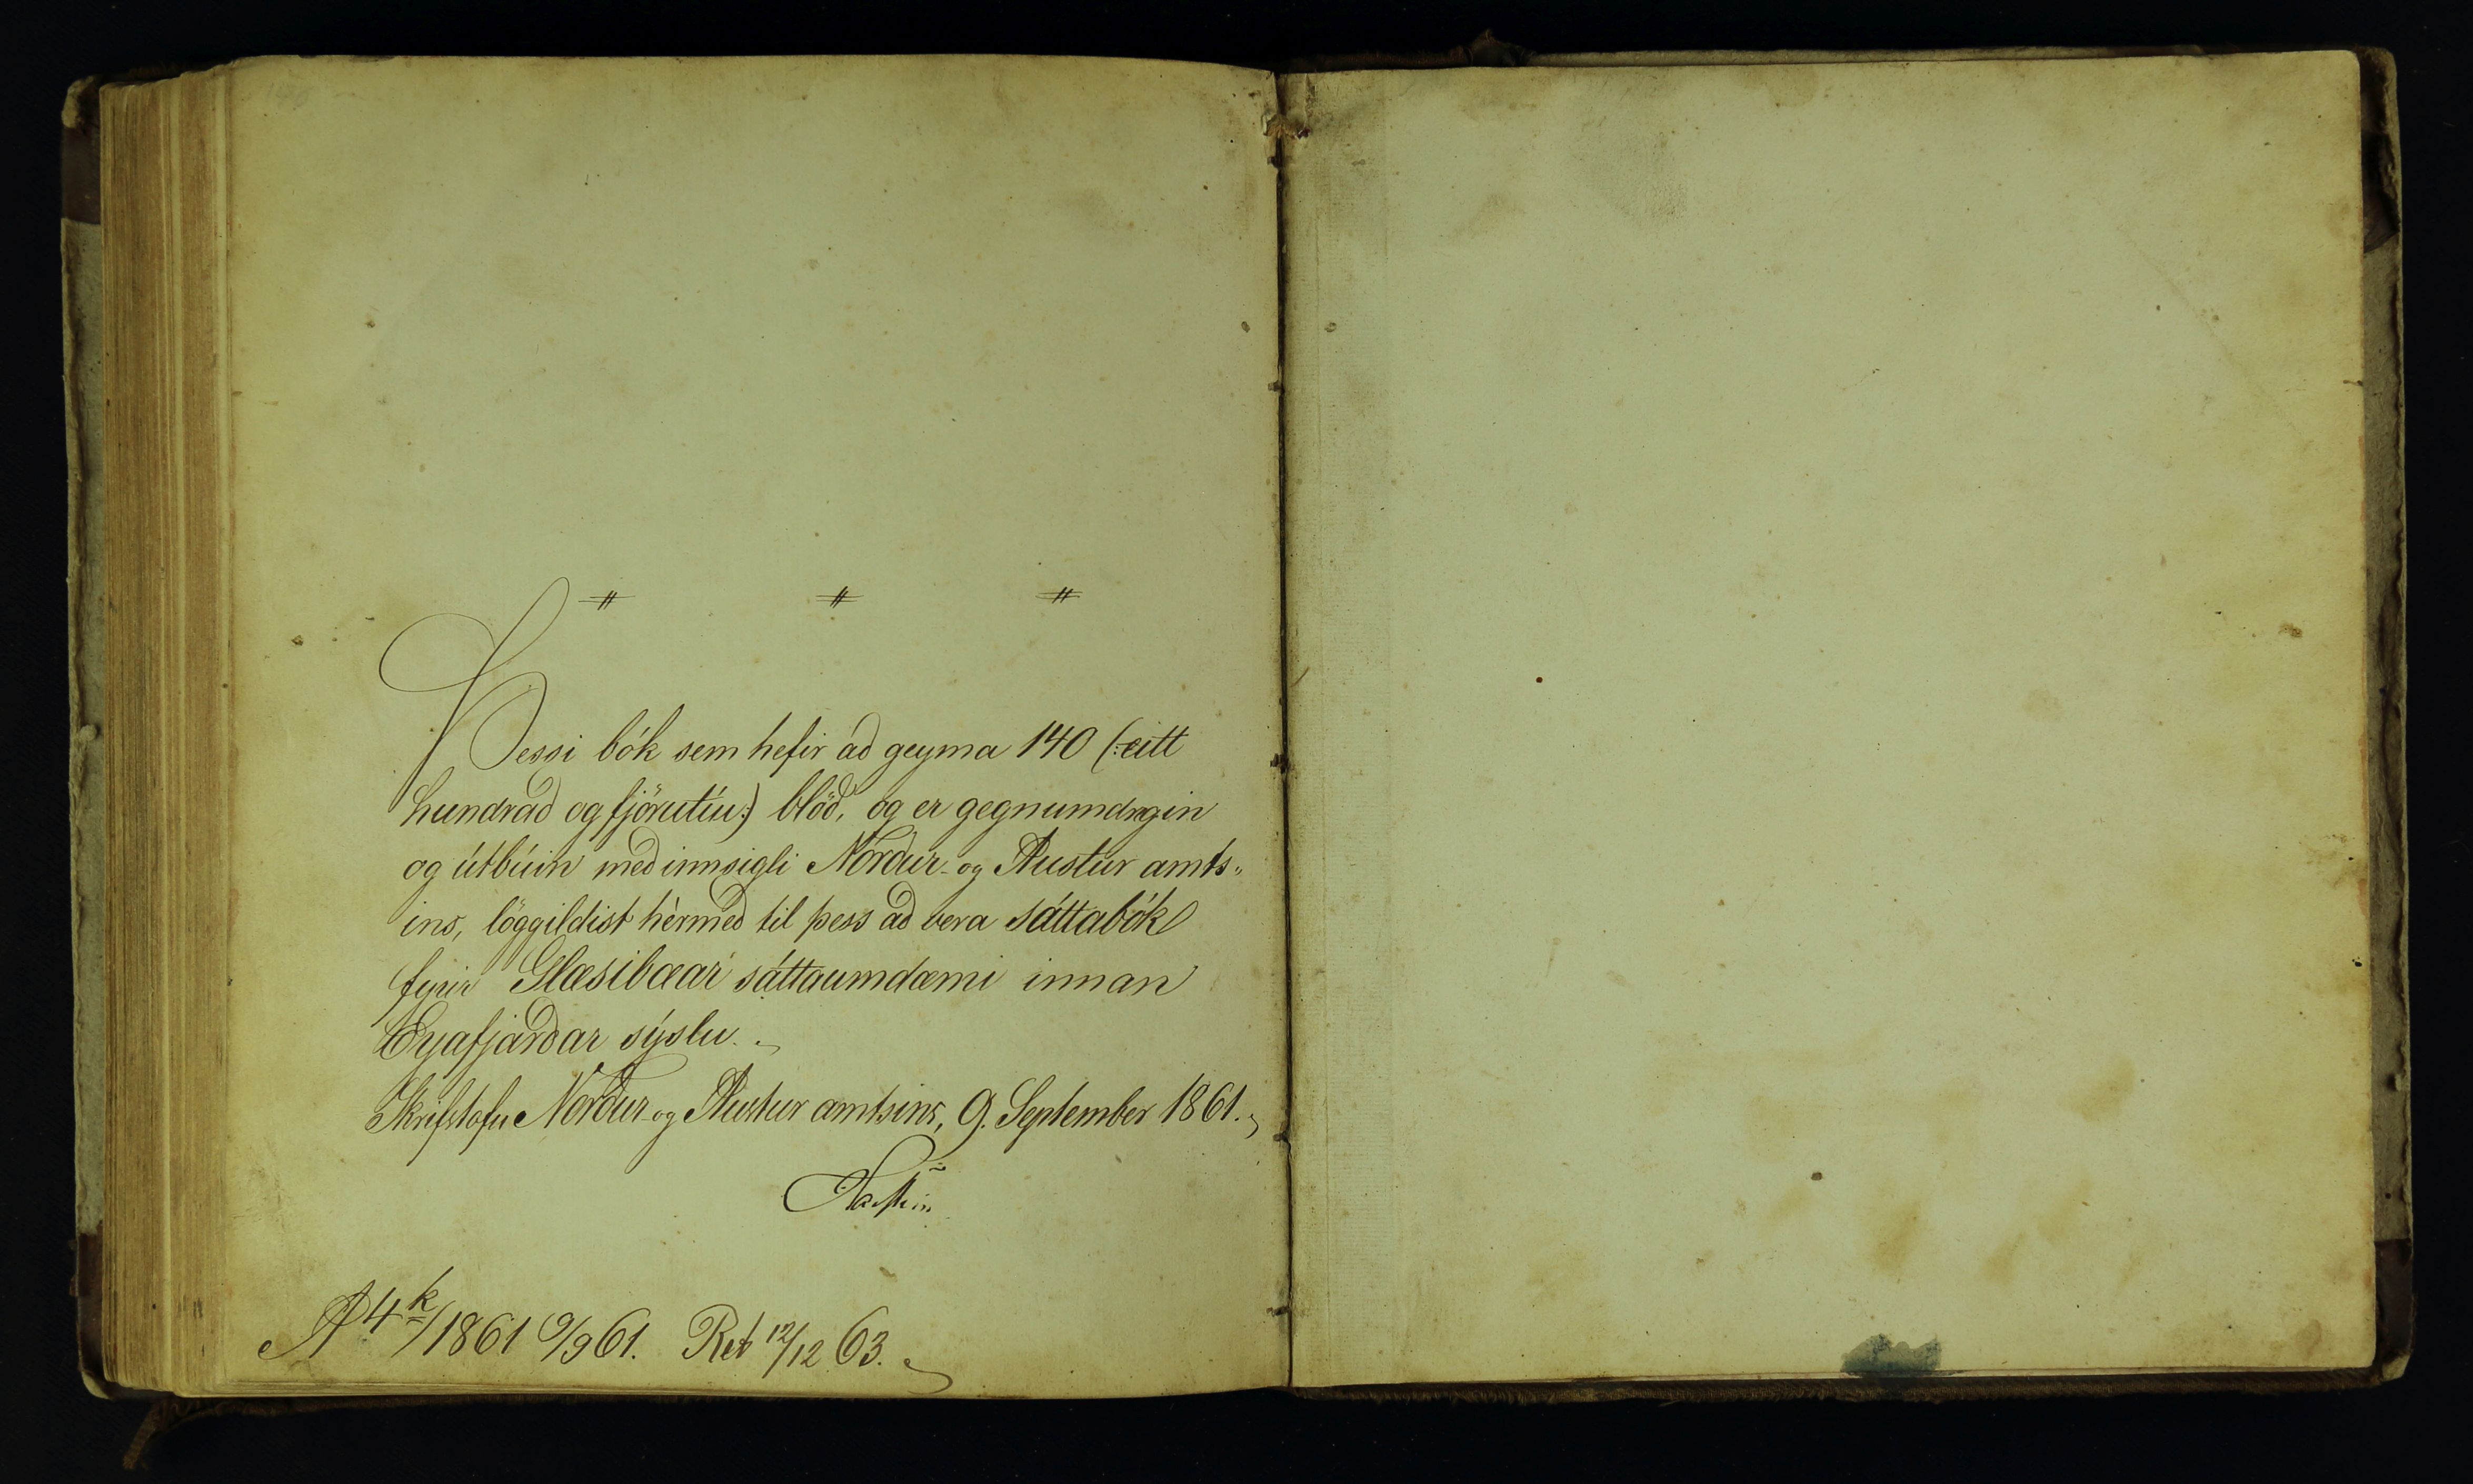 Þessi bók sem hefir að geyma 140 (:eitt
hundrað og fjörutíu:) blöð, og er gegnumdregin
og útbúin með innsigli Norður- og Austur amts-
ins, löggildist hèrmeð til þess að vera sáttabók
fyrir Glæsibæar sáttaumdæmi innan
Eyafjarðar sýslu.
Skrifstofu Norður- og Austur amtsins, 9. September 1861.
Havstein
A 4k/1861 9/9 61. Ret 12/12 63.